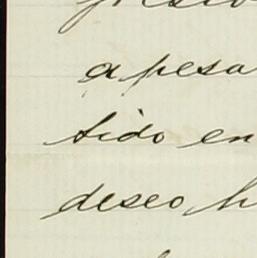 apesa
sido en
deseo h